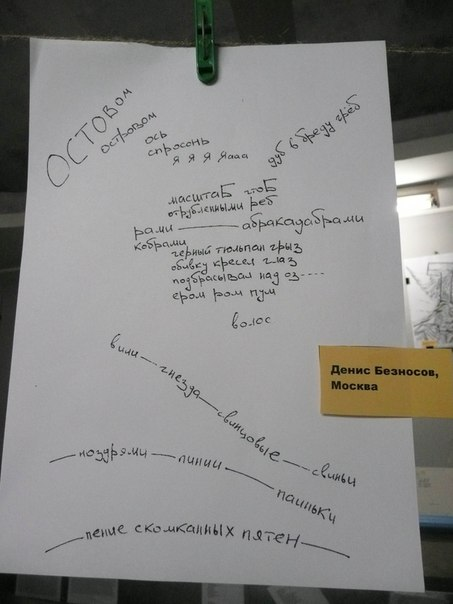 ОСТОВом
островом
ось
спросонь
я я я яааа
дуб в бреду грёб
масштаБ чтоБ
отрубленными рёб
рами —— абракадабрами
кобрами
чёрный тюльпан грыз
обивку кресел глаз
подбрасывал над оз----
ером ром пум
волос
вили — гнезда — свинцовые — свиньи
— нозурями — линии — паиньки
— пение скомканных пятен —
Денис Безносов,
Москва